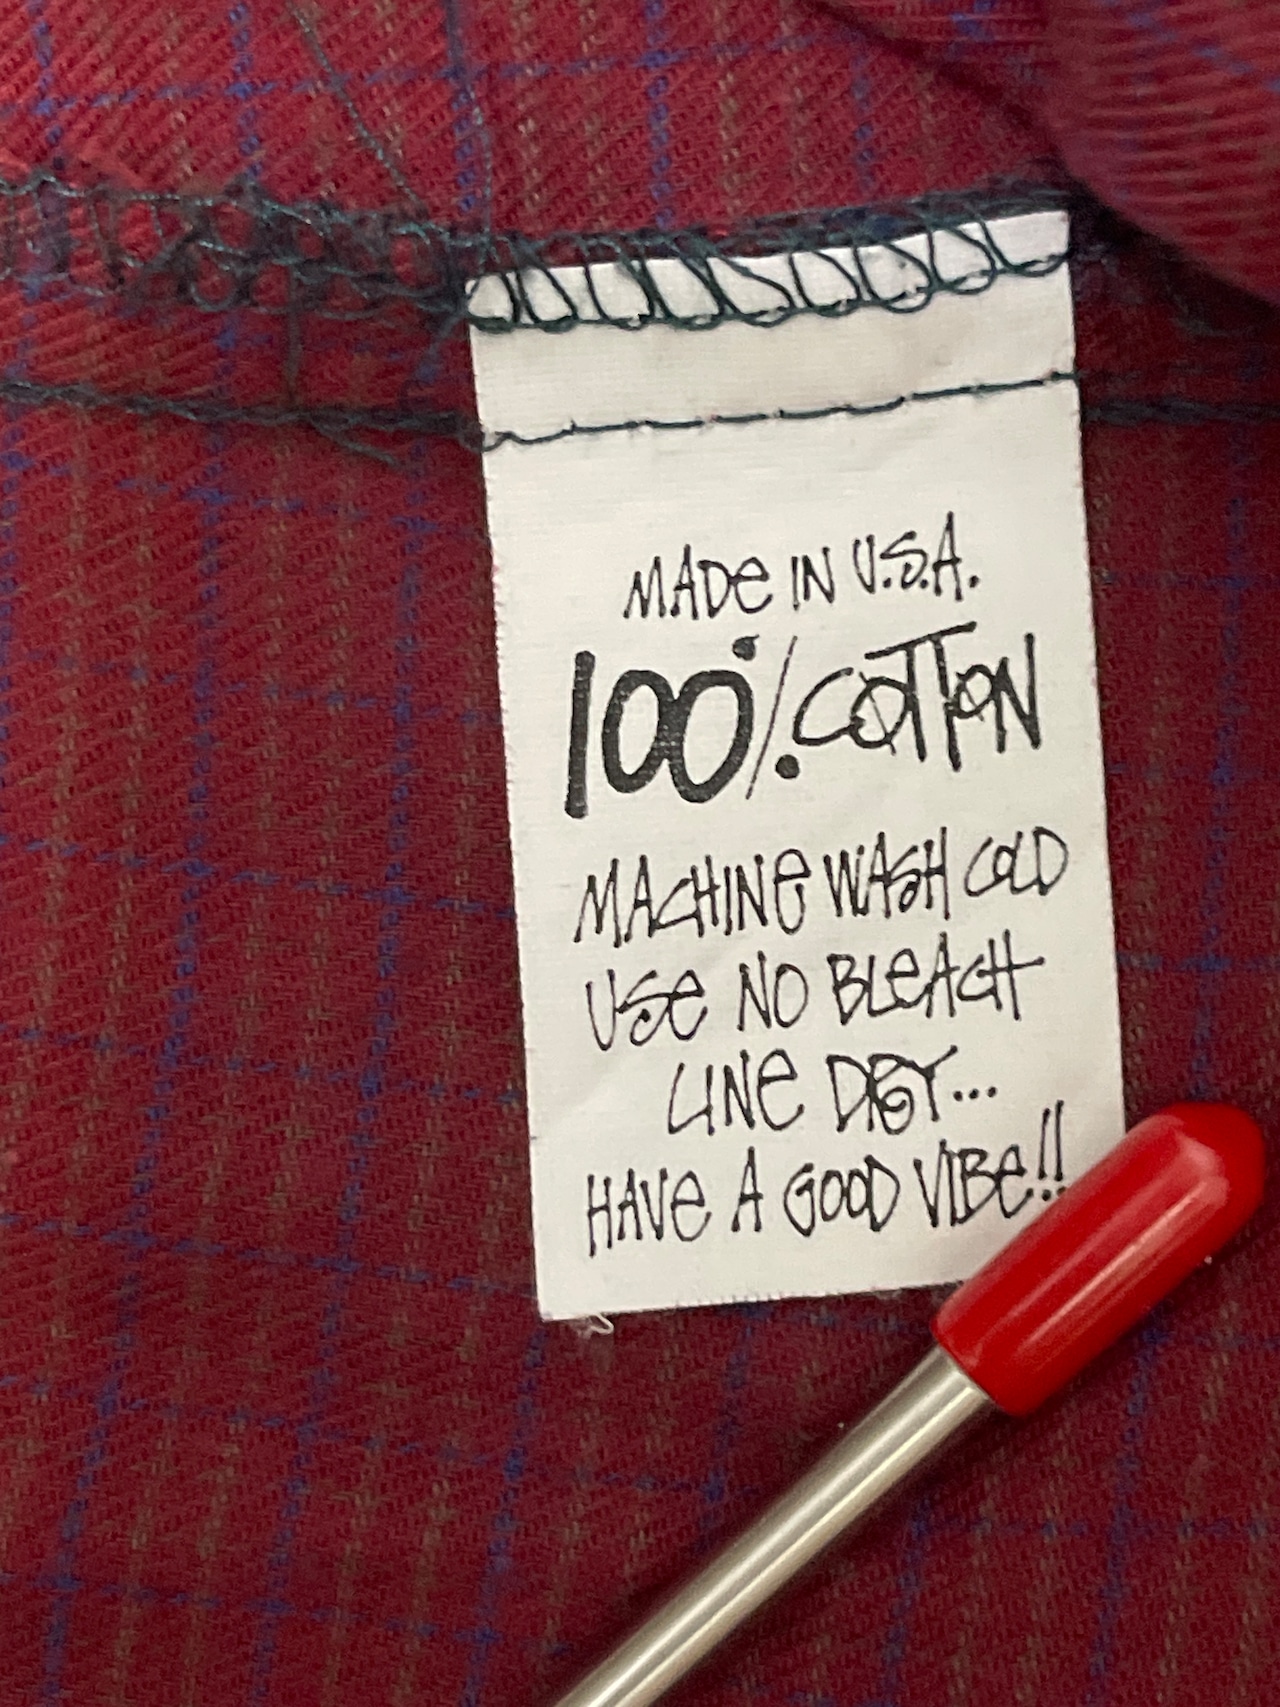 MADe IN U.S.A.
100% COTTON
MACHINe WASH COLD
USe NO BLeACH
LINe DRY...
HAVe A GOOD VIBe!!